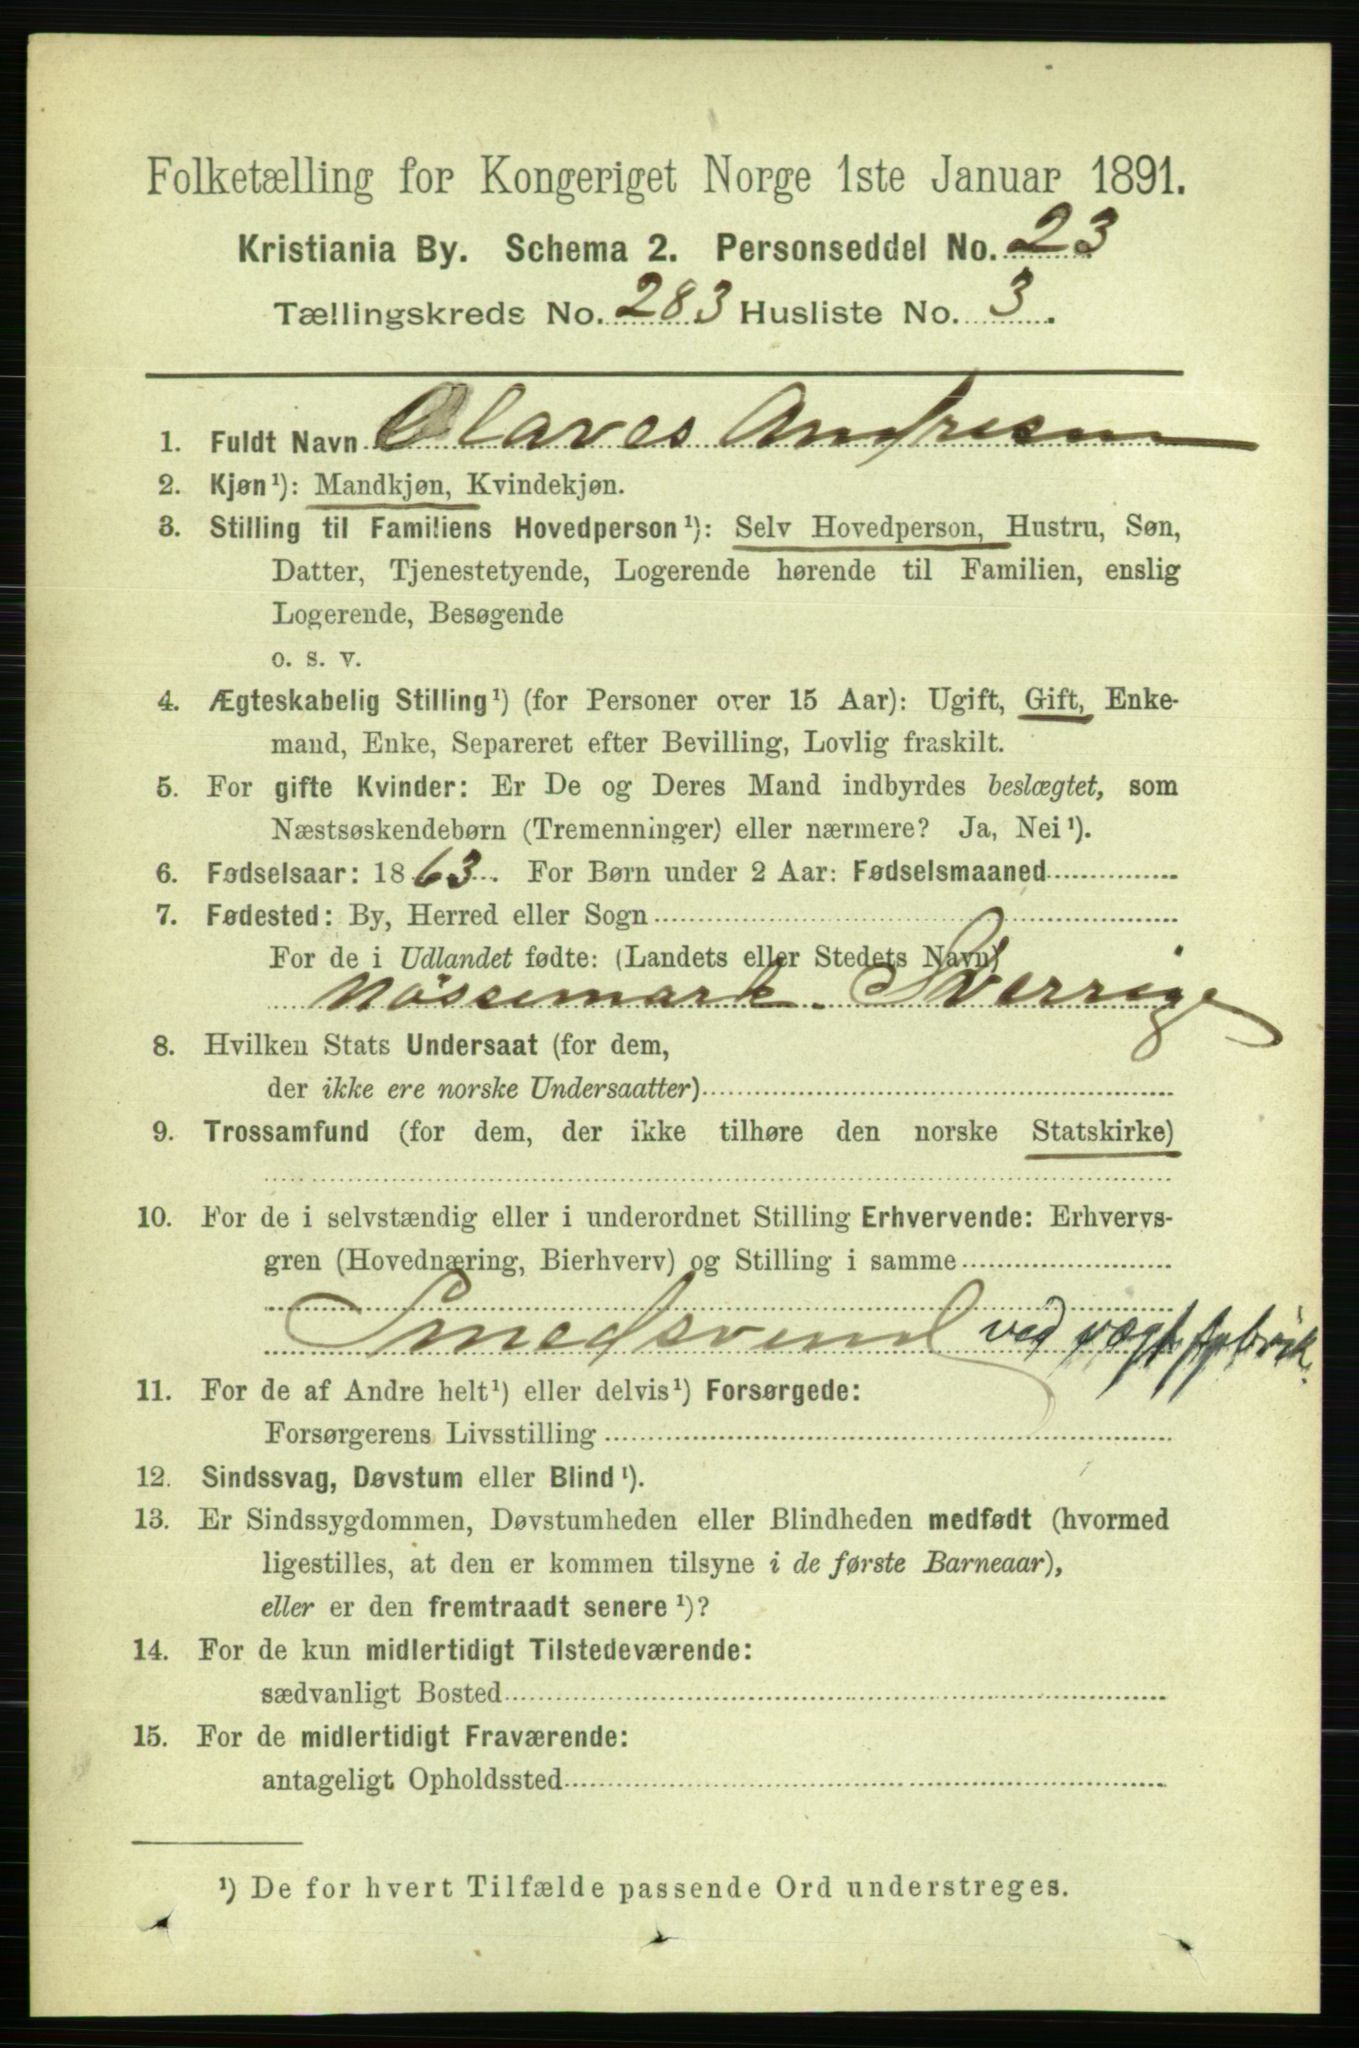 Folketælling for Kongeriget Norge 1ste Januar 1891.
Kristiania By. Schema 2. Personseddel No. 23
Tællingskreds No. 283 Husliste No. 3.
1. Fuldt Navn Olaves Andresen
2. Kjøn¹): Mandkjøn, Kvindekjøn.
3. Stilling til Familiens Hovedperson¹): Selv Hovedperson, Hustru, Søn,
Datter, Tjenestetyende, Logerende hørende til Familien, enslig
Logerende, Besøgende
o. s. v.
4. Ægteskabelig Stilling¹) (for Personer over 15 Aar): Ugift, Gift, Enke-
mand, Enke, Separeret efter Bevilling, Lovlig fraskilt.
5. For gifte Kvinder: Er De og Deres Mand indbyrdes beslægtet, som
Næstsøskendebørn (Tremenninger) eller nærmere? Ja, Nei¹).
6. Fødselsaar: 1863. For Børn under 2 Aar: Fødselsmaaned
7. Fødested: By, Herred eller Sogn
For de i Udlandet fødte: (Landets eller Stedets Navn)
Nössemark. Sverrige
8. Hvilken Stats Undersaat (for dem,
der ikke ere norske Undersaatter)
9. Trossamfund (for dem, der ikke tilhøre den norske Statskirke)
10. For de i selvstændig eller i underordnet Stilling Erhvervende: Erhvervs-
gren (Hovednæring, Bierhverv) og Stilling i samme
Smedsvend ved vægtfabrik.
11. For de af Andre helt¹) eller delvis¹) Forsørgede:
Forsørgerens Livsstilling
12. Sindssvag, Døvstum eller Blind¹).
13. Er Sindssygdommen, Døvstumheden eller Blindheden medfødt (hvormed
ligestilles, at den er kommen tilsyne i de første Barneaar),
eller er den fremtraadt senere¹)?
14. For de kun midlertidigt Tilstedeværende:
sædvanligt Bosted
15. For de midlertidigt Fraværende:
antageligt Opholdssted
¹) De for hvert Tilfælde passende Ord understreges.